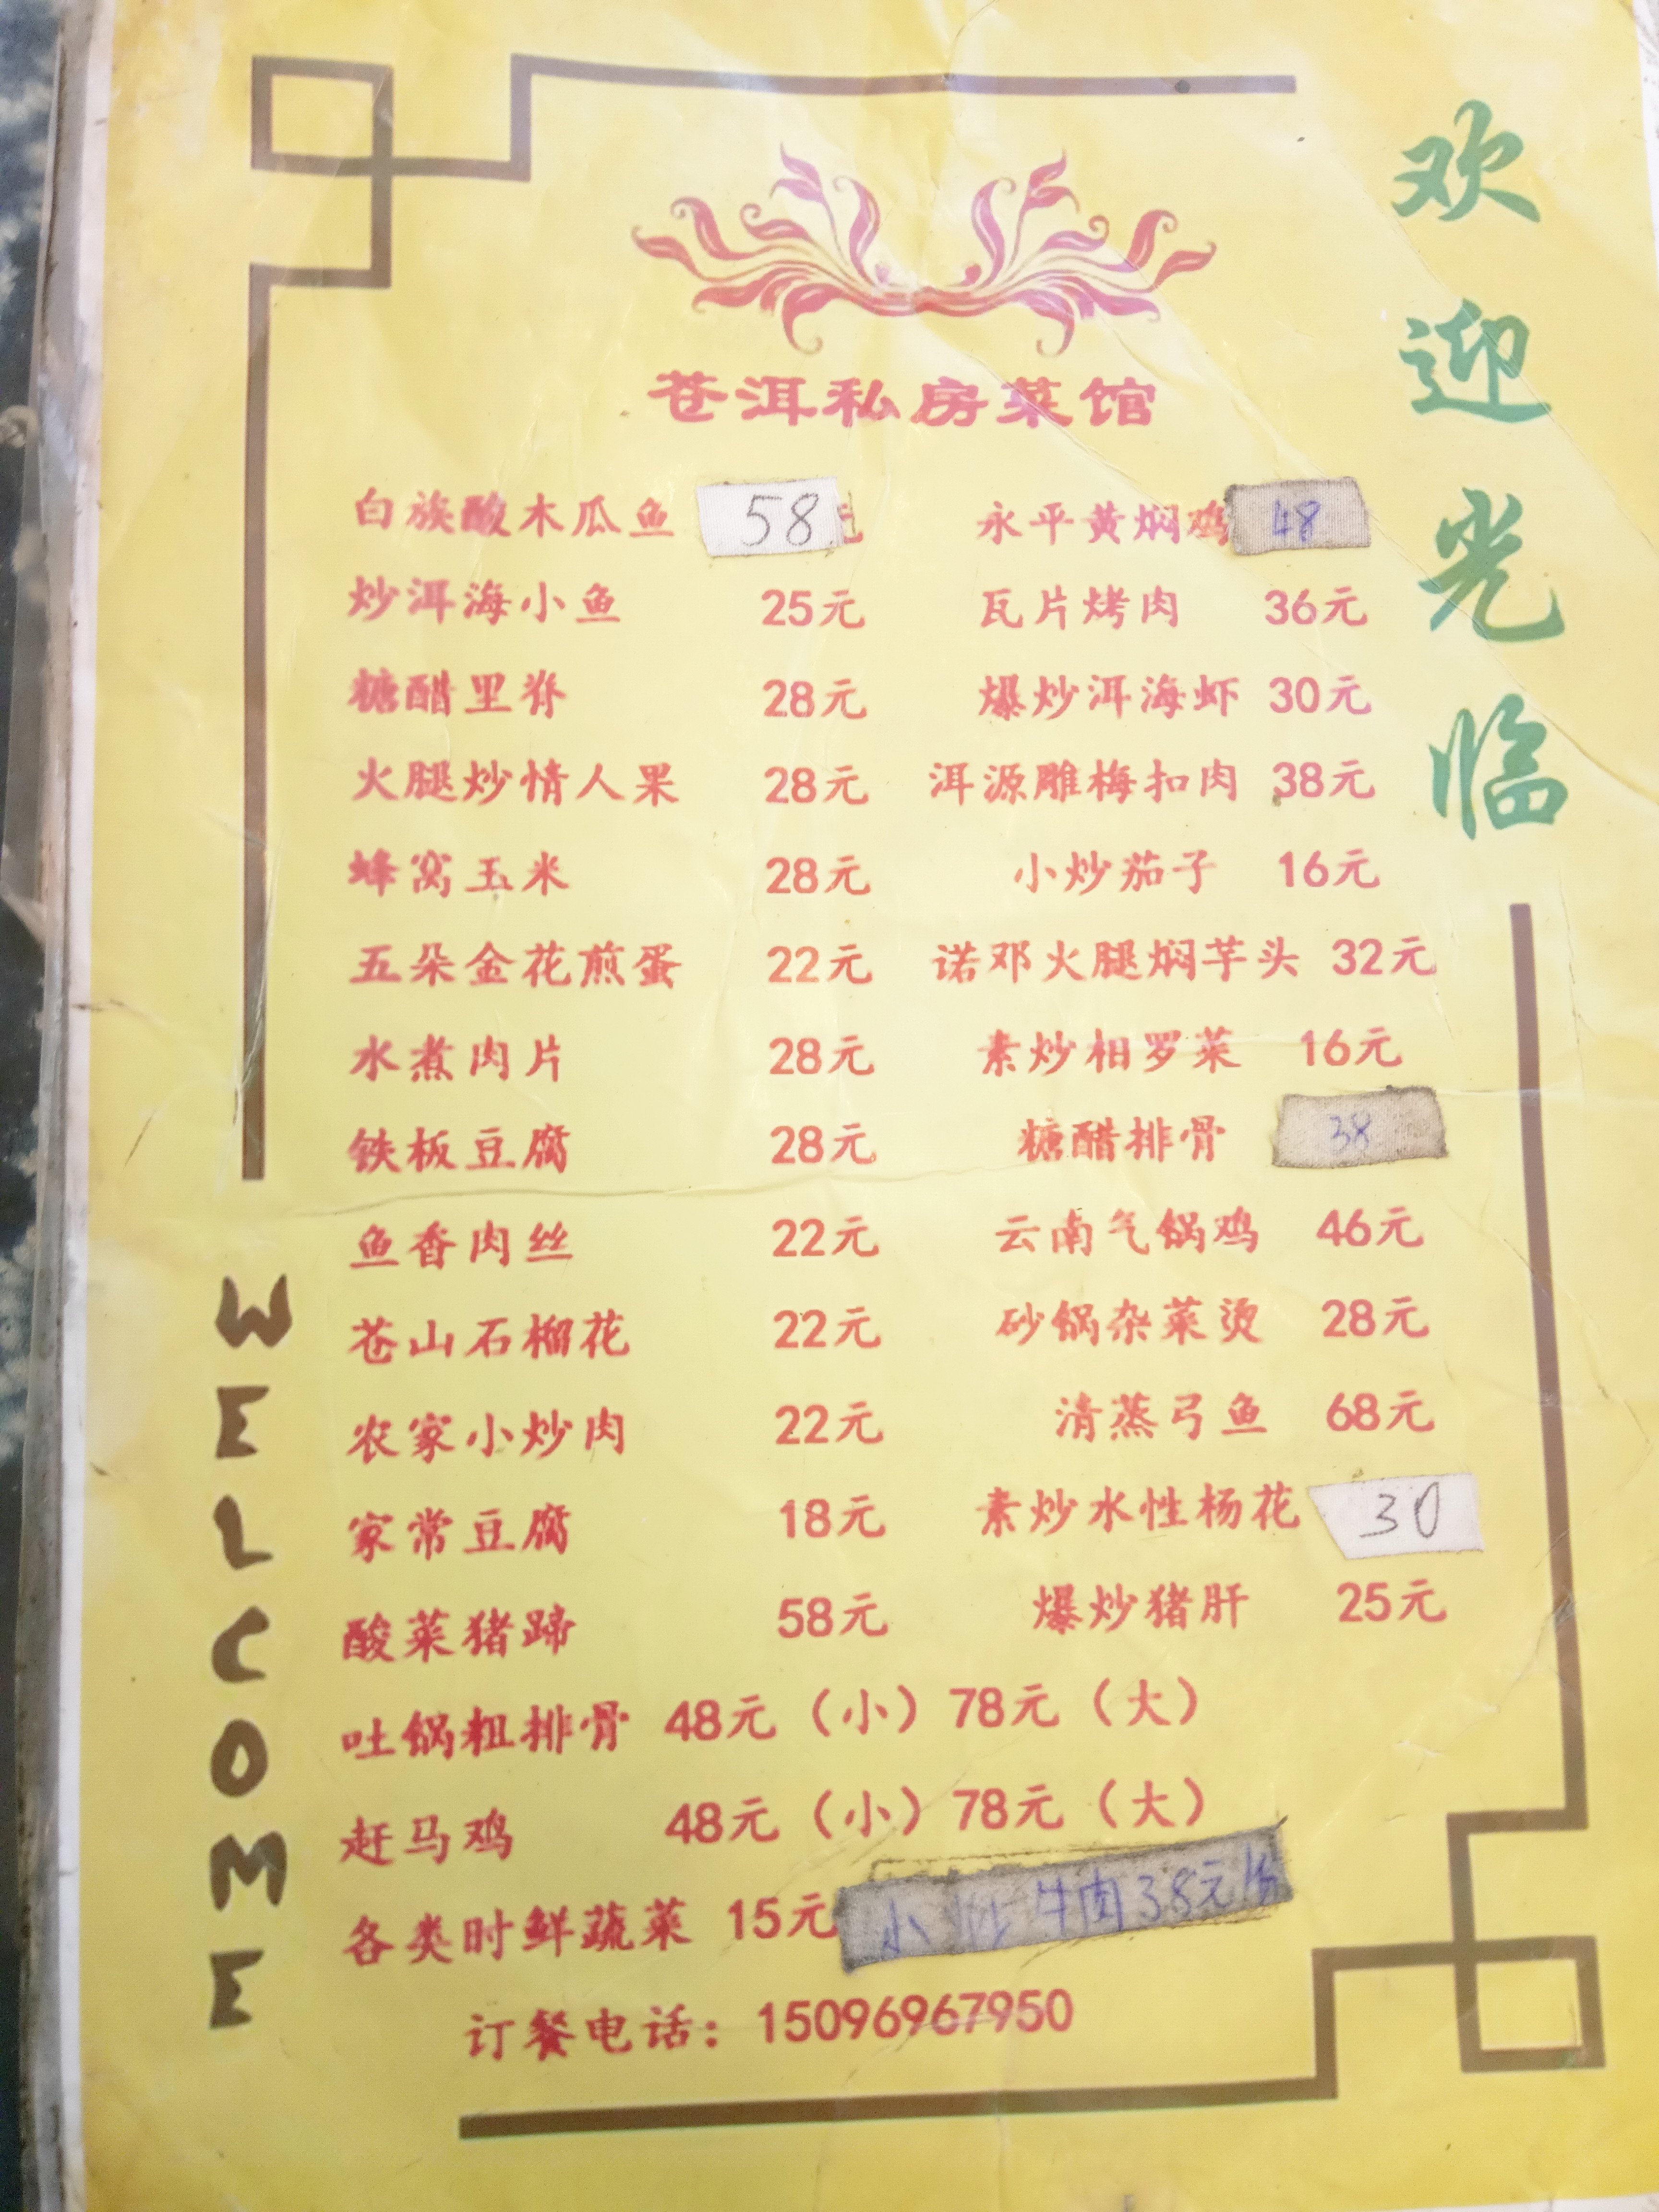 欢迎光临
苍洱私房菜馆
白族酸木瓜鱼 58元
炒洱海小鱼 25元
糖醋里脊 28元
火腿炒情人果 28元
蜂窝玉米 28元
五朵金花煎蛋 22元
水煮肉片 28元
铁板豆腐 28元
鱼香肉丝 22元
苍山石榴花 22元
农家小炒肉 22元
家常豆腐 18元
酸菜猪蹄 58元
永平黄焖鸡 48
瓦片烤肉 36元
爆炒洱海虾 30元
洱源雕梅扣肉 38元
小炒茄子 16元
诺邓火腿焖芋头 32元
素炒相罗菜 16元
糖醋排骨 38
云南气锅鸡 46元
砂锅杂菜烫 28元
清蒸弓鱼 68元
素炒水性杨花 30
爆炒猪肝 25元
吐锅粗排骨 48元（小）78元（大）
赶马鸡 48元（小）78元（大）
各类时鲜蔬菜 15元
小炒牛肉38元/份
订餐电话：15096967950
WELCOME